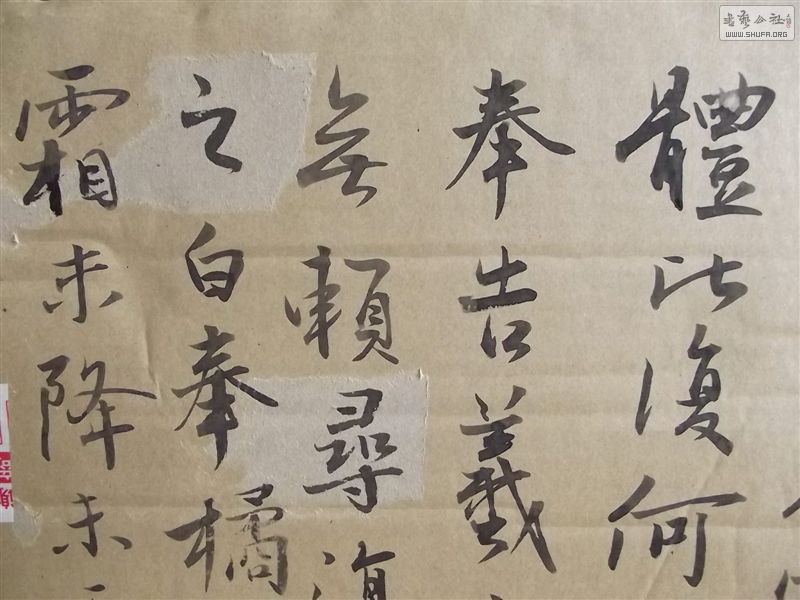 體比復何
奉告羲
無賴尋復
之白奉橘
霜未降未
書藝公社
WWW.SHUFA.ORG